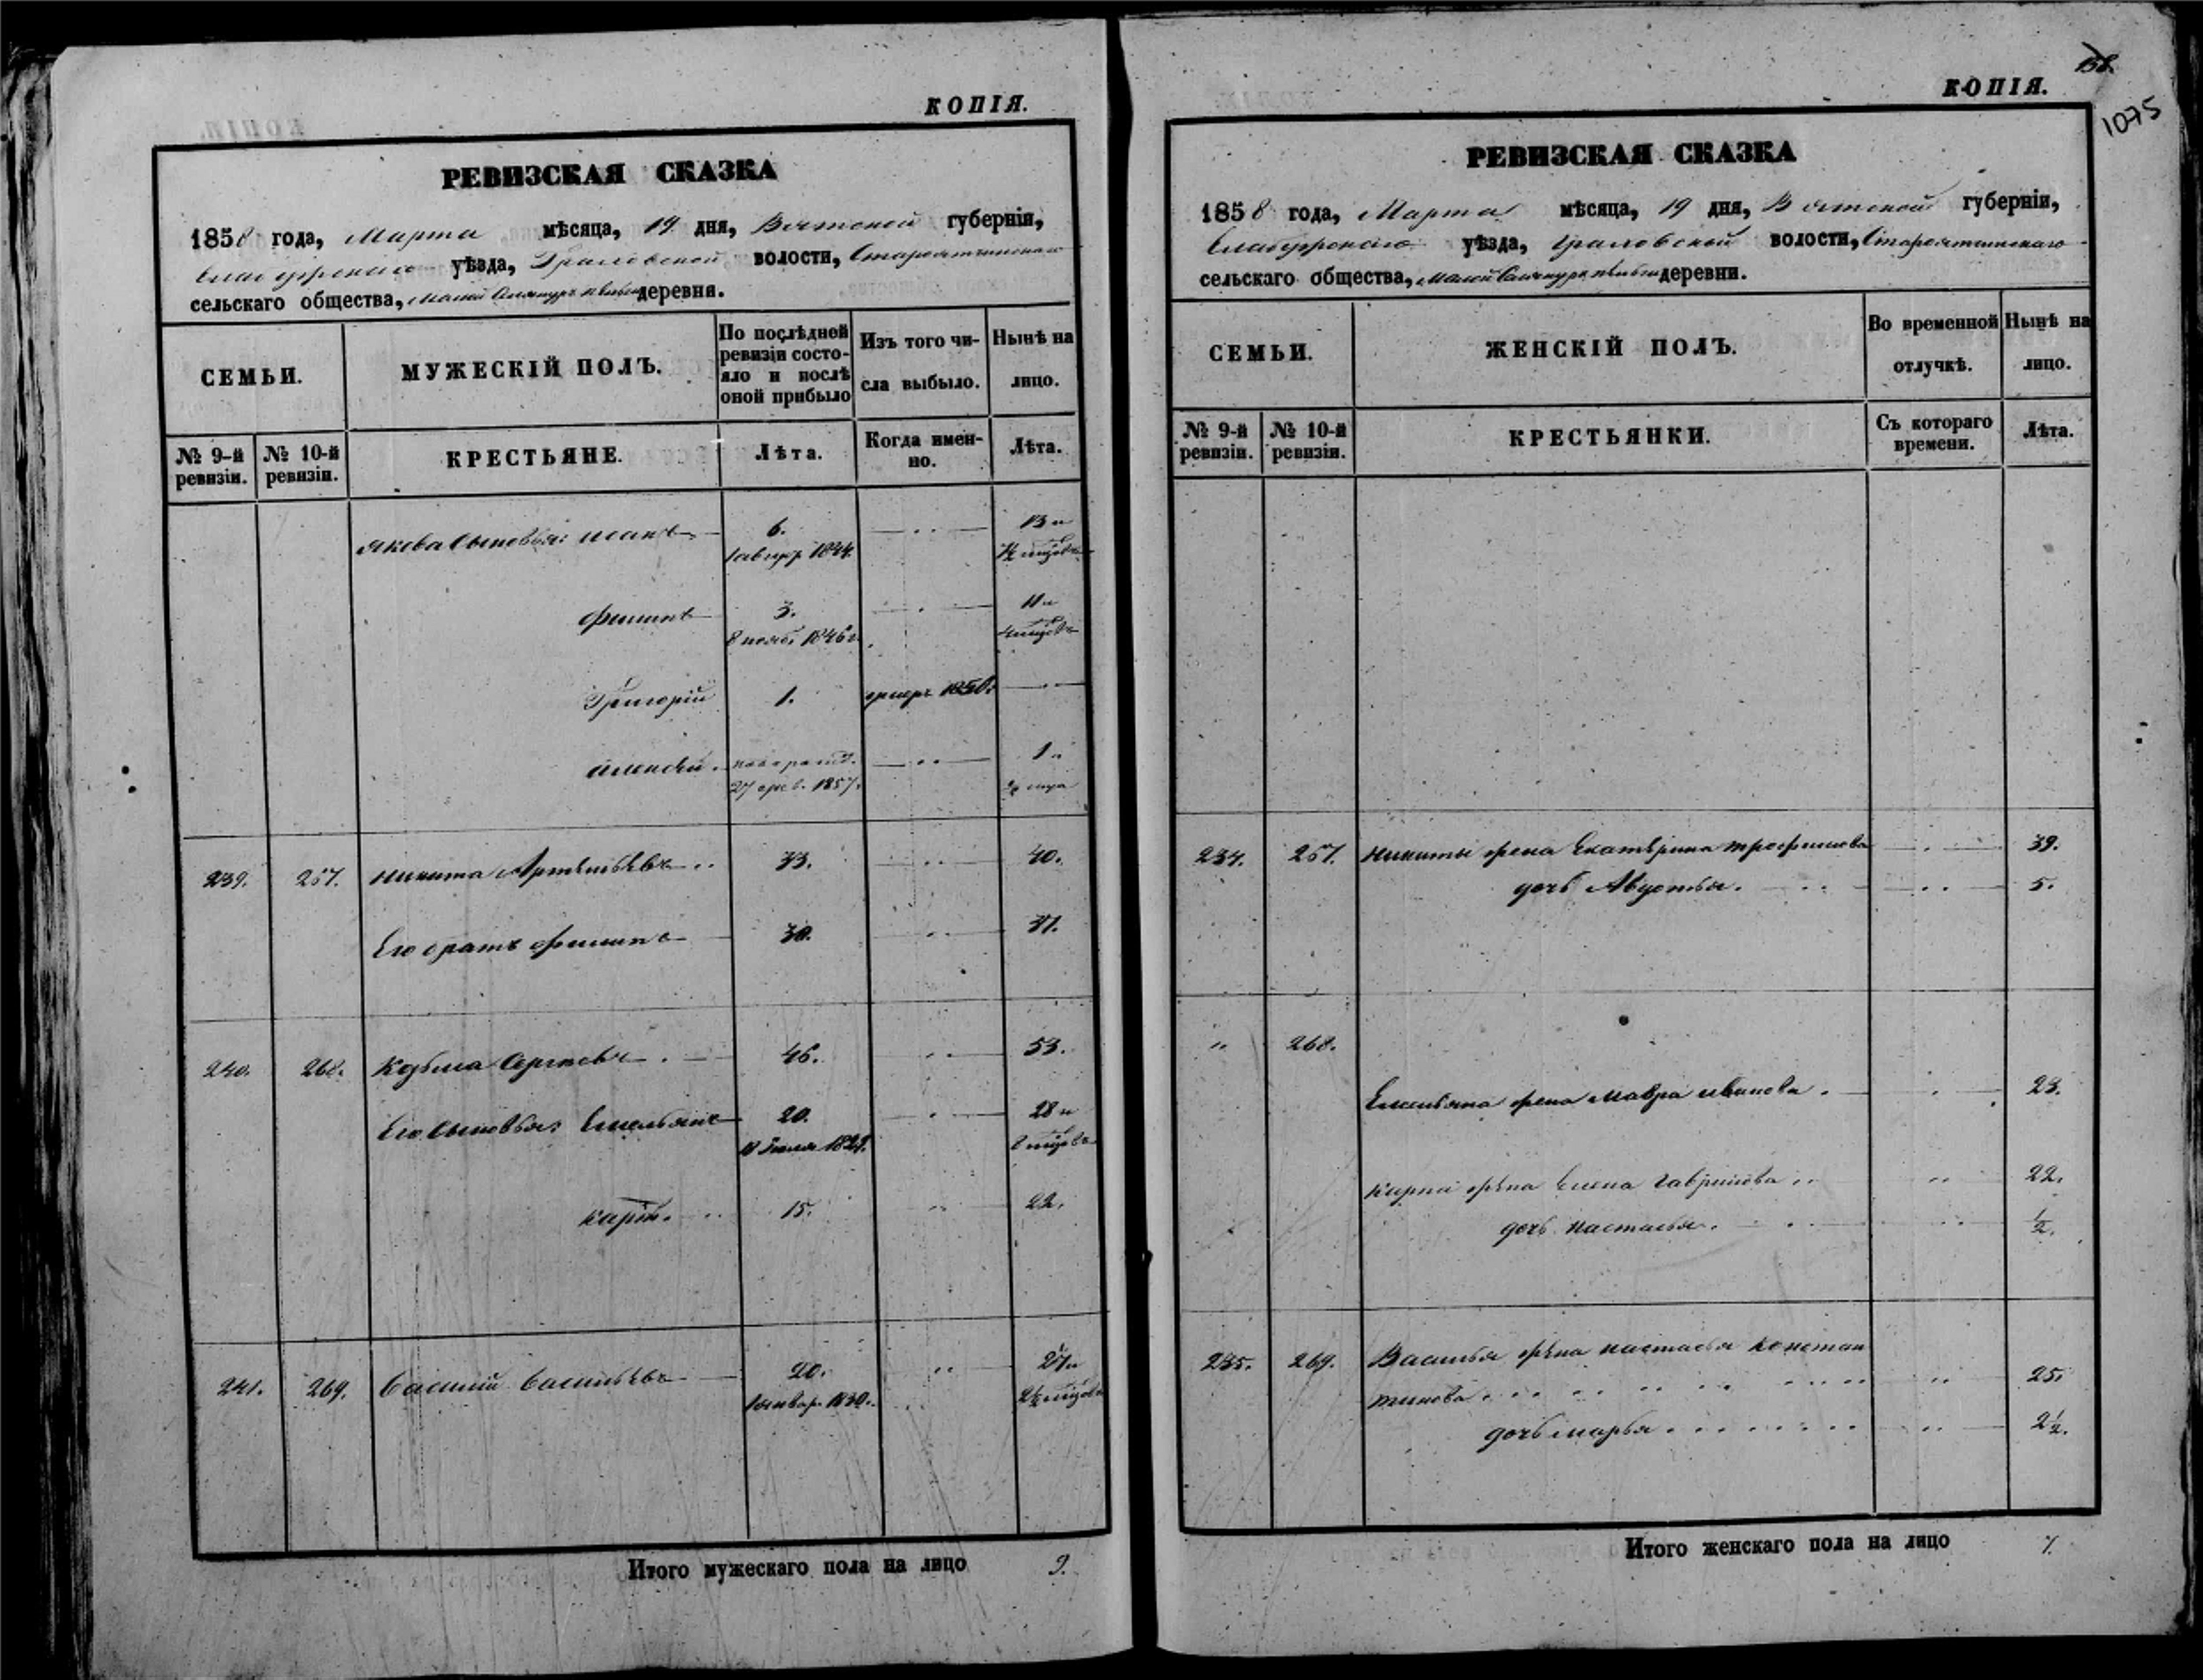 КОПІЯ.
РЕВИЗСКАЯ СКАЗКА
1858 года, Марта мѣсяца, 19 дня, Вятской губерніи,
Елабужскаго уѣзда, Граховской волости,
сельскаго общества, Малой деревня.
СЕМЬИ.
МУЖЕСКІЙ ПОЛЪ.
По послѣдней ревизіи состояло и послѣ оной прибыло
Изъ того числа выбыло.
Нынѣ на лицо.
№ 9-й ревизіи.
№ 10-й ревизіи.
КРЕСТЬЯНЕ.
Лѣта.
Когда именно.
Лѣта.
Якова сыновья: 6. 13 и
1844
Филипъ 3. 11 и
8 нояб. 1846
Григорій 1. 1850.
Алексѣй. 1 и
27 1857.
239. 267. Никита Артемьевъ 33. 40.
Его братъ Филипъ 30. 37.
240. 268. Козьма Сергѣевъ 46. 53.
Его сыновья: Емельянъ 20. 28 и
Іюля 8
Карпъ. 15. 22.
241. 269. Василій Васильевъ 20. 27 и
1 январ. 1830.
Итого мужескаго пола на лицо 9.
158.
КОПІЯ.
1075
РЕВИЗСКАЯ СКАЗКА
1858 года, Марта мѣсяца, 19 дня, Вятской губерніи,
Елабужскаго уѣзда, Граховской волости,
сельскаго общества, Малой деревни.
СЕМЬИ.
ЖЕНСКІЙ ПОЛЪ.
Во временной отлучкѣ.
Нынѣ на лицо.
№ 9-й ревизіи.
№ 10-й ревизіи.
КРЕСТЬЯНКИ.
Съ котораго времени.
Лѣта.
234. 267. Никиты жена Екатерина Трофимова 39.
дочь Авдотья. 5.
" 268.
Емельяна жена Мавра Иванова. 23.
Карпа жена Елена Гаврилова 22.
дочь Настасья. 1/2.
235. 269. Василья жена Настасья Констан
тинова 25.
дочь Марья 2 1/2.
Итого женскаго пола на лицо 7.